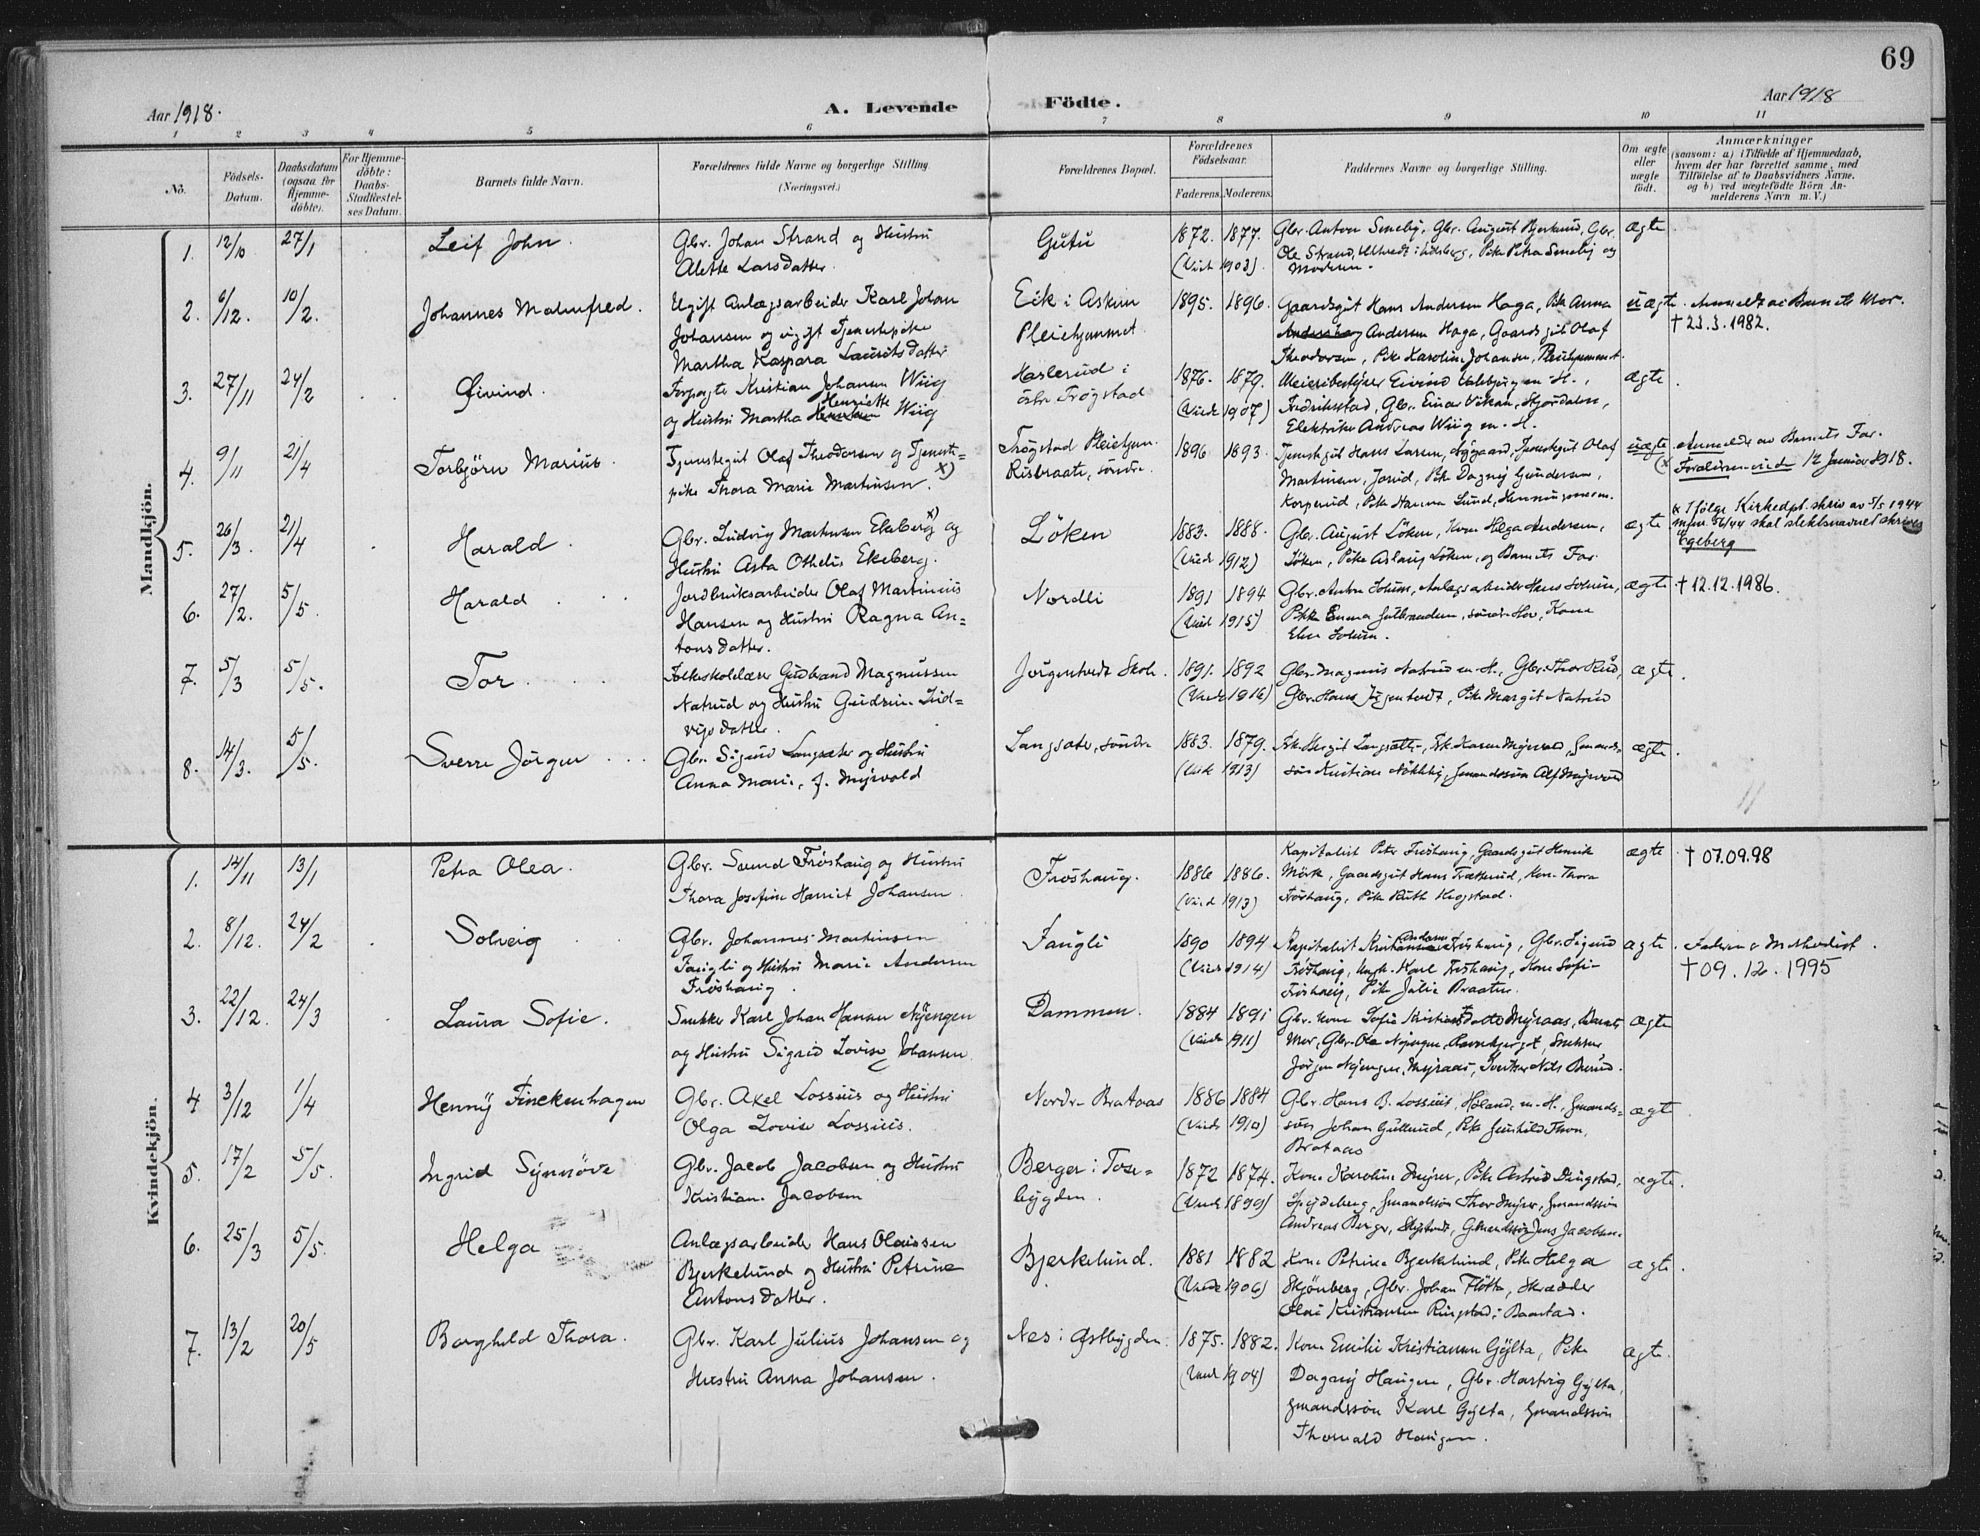 69
Aar 1918.
A. Levende
Födte.
Aar 1918
1 2 3 4 5 6 7 8 9 10 11
No.
Födsels-Datum.
Daabsdatum (ogsaa for Hjemme-döbte).
For Hjemme-döbte: Daabs-Stadfæstel-ses Datum.
Barnets fulde Navn.
Forældrenes fulde Navne og borgerlige Stilling. (Næringsvei.)
Forældrenes Bopæl.
Forældrenes Födselsaar.
Faderens. Moderens.
Faddernes Navne og borgerlige Stilling.
Om ægte eller uægte födt.
Anmærkninger
(saasom: a) i Tilfælde af Hjemmedaab,
hvem der har forrettet samme, med
Tilföielse af to Daabsvidners Navne,
og b) ved uægtefödte Börn An-
melderens Navn m. V.)
Mandkjön.
1. 12/10 27/1 Leif John.
Gbr. Johan Strand og Hustru
Alette Larsdatter.
Gutu
1872. 1877.
(Viet 1903).
Gbr. Anton Seneby, Gbr. August Bjerklund, Gbr.
Ole Strand, Pike Petra Seneby og
Moderen.
ægte
2. 6/12. 10/2. Johannes Malmfred.
Ugift Anlægsarbeider Karl Johan
Johansen og ugift Tjenestepike
Martha Kaspara Lauritsdatter
Eik i Askim
Pleiehjemmet
1895. 1896.
Gaardsgut Hans Andersen Haga, Pike Anna
Andersen Haga, Gaardsgut Olaf
Theodorsen, Pike Karoline Johansen, Pleiehjemmet.
uægte. Anmeldt av Barnets Mor.
† 23.3.1982.
3. 27/11 24/2 Øivind.
Forpagter Kristian Johansen Wiig
og Hustru Martha Henriette Wiig
Haslerud i
østre Trøgstad
1876. 1879.
(Viede 1907)
Meieribestyrer Eivind m. H.,
Fredriksstad, Gbr. Einar Vikan, Stjordalen,
Elektriker Andreas Wiig m. H.
ægte.
4. 9/11 21/4 Torbjörn Marius.
Tjenestegut Olaf Theodorsen og Tjeneste=
pike Thora Marie Martinsen. x)
Trøgstad Pleiehjem.
Risbraate, søndre.
1896 1893.
Tjenestegut Hans Larsen, Nygaard, Tjenestegut Olaf
Martinsen, Pike Dagny Gundersen,
Korperud, Pike Hanna Lund,
uægte Anmeldt av Barnets Far.
(x Forældrene viede 12 Januar 1918.
5. 26/3. 21/4 Harald.
Gbr. Ludvig Martinsen Ekeberg x) og
Hustru Asta Othelie Ekeberg.
Löken
1883. 1888.
(Viede 1912)
Gbr. August Löken, Kone Helga Andersen,
Löken, Pike Aslaug Löken, og Barnets Far.
ægte
x Ifølge Kirkedpt. skriv av 5/5 1944
skal slektsnavnet skrives
Egeberg
6. 27/2. 5/5. Harald
Jordbruksarbeider Olaf Martinius
Hansen og Hustru Ragna An=
tonsdatter.
Nordli
1891 1894
(Viede 1915)
Gbr. Anton Solum, Anlægsarbeider Hans Solum,
Pike Emma Gulbrandsen, søndre Hov, Kone
Else Solum.
ægte. † 12.12.1986.
7. 5/3 5/5. Tor
Folkeskolelærer Gudbrand Magnussen
Natrud og Hustru Gudrun Lud=
vigsdatter.
Jörgentvedt Skole.
1891. 1892
(Viede 1916)
Gbr. Magnus Natrud m. H., Gbr. Thor Rud,
Gbr. Hans Jørgentvedt, Pike Margit Natrud
ægte.
8. 14/3. 5/5. Sverre Jörgen
Gbr. Sigurd Langsæter og Hustru
Anna Marie, f. Myrvold
Langsæter, søndre
1883. 1879.
(Viede 1913)
Frk. Margit Langsæter, Frk. Karen Myrvold, Gmands-
søn Kristian Nökleby, Gmandssøn Alf Myrvold
ægte.
Kvindekjön.
1. 14/11 13/1 Petra Olea.
Gbr. Svend Frøshaug og Hustru
Thora Josefine Harriet Johansen.
Frøshaug.
1886 1886.
(Viede 1913)
Kapitalist Peter Frøshaug, Gaardsgut Henrik
Mörk, Gaardsgut Hans Trætterud, Kone Thora
Frøshaug, Pike Ruth Hegstad.
ægte † 07.09.98
2. 8/12. 24/2 Solveig
Gbr. Johannes Martinsen
Faugli og Hustru Marie Andersen
Frøshaug.
Faugli
1890 1894
(Viede 1914)
Kapitalist Kristian Anders Frøshaug, Gbr. Sigurd
Frøshaug, Ungk. Karl Frøshaug, Kone Sofie
Frøshaug, Pike Julie Braaten.
ægte. Faderen er Methodist.
† 09.12.1995
3. 22/12. 24/3 Laura Sofie.
Snekker Karl Johan Hansen Nyengen
og Hustru Sigrid Lovise Johansen.
Dammen.
1884 1891
(Viede 1911)
Gbr. kone Sofie Kristiansdatter Myraas, Barnets
Mor, Gbr. Ole Nyengen, Ravnbjerget, Snekker
Jörgen Nyengen, Myraas, Snekker Nils Berud.
ægte
4 3/12 1/4 Henny Finckenhagen
Gbr. Axel Lossius og Hustru
Olga Lovise Lossius.
Nordre Brataas
1886 1884
(Viede 1910)
Gbr. Hans B. Lossius, Høland, m. H., Gmands=
søn Johan Gullerud, Pike Gunhild Thon,
Brataas
ægte.
5. 17/2 5/5. Ingrid Synnöve
Gbr. Jacob Jacobsen og Hustru
Kristiane Jacobsen
Berger i Tose=
bygden.
1872 1874.
(Viede 1899)
Kone Karoline Myrer, Pike Astrid Dingstad,
Spydeberg, Gmandssøn Thor Myrer, Gmandssøn
Andreas Berger, Skjstvedt, Gmandssøn Jens Jacobsen.
ægte.
6. 25/3 5/5. Helga
Anlægsarbeider Hans Olaussen
Bjerkelund og Hustru Petrine
Antonsdatter.
Bjerkelund.
1881 1882
(Viede 1906)
Kone Petrine Bjerkelund, Pike Helga
Skjönberg, Gbr. Johan Flötta, Skrædder
Olai Kristiansen Ringstad, Baastad.
ægte.
7. 13/2 20/5 Borghild Thora.
Gbr. Karl Julius Johansen og
Hustru Anna Johansen.
Nes i Østbygden.
1875. 1882.
(Viede 1904)
Kone Emilie Kristiansen Gylta, Pike
Dagny Haugen, Gbr. Hartvig Gylta,
Gmandssøn Karl Gylta, Gmandssøn
Thorvald Haugen.
ægte.